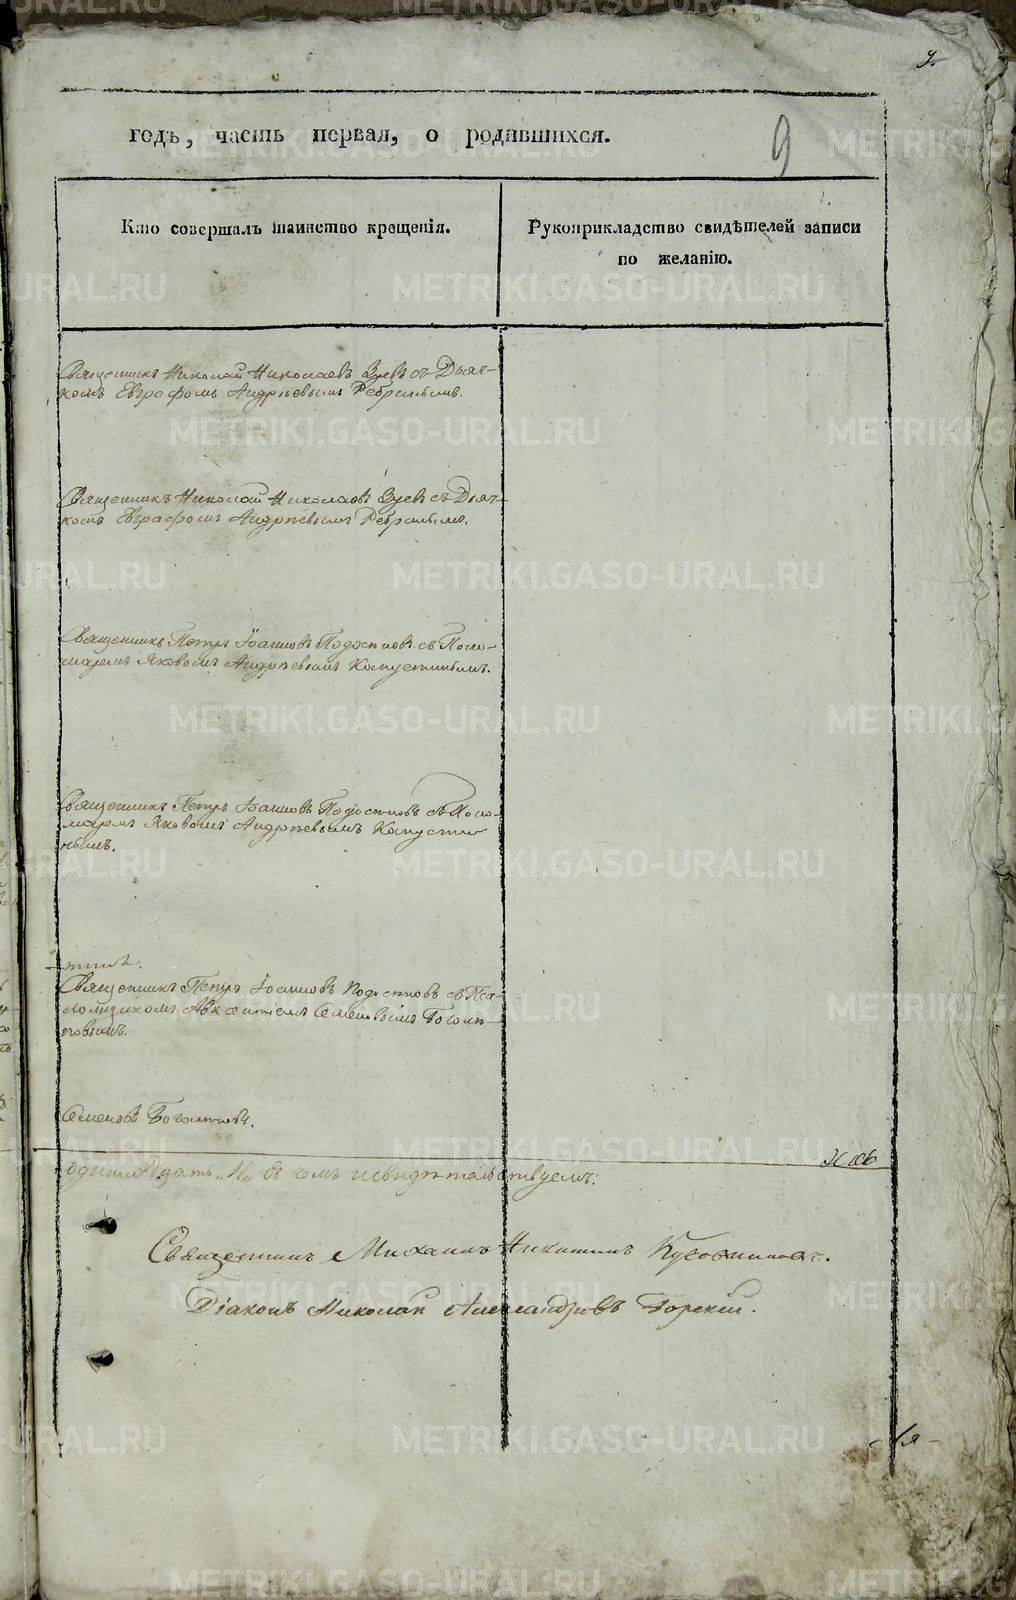 9.
годъ, часть первая, о родившихся.
9
Кто совершалъ таинство крещенія.
Рукоприкладство свидѣтелей записи
по желанію.
Священникъ Николай Николаевъ Зуевъ съ Дьяч-
комъ Евграфомъ Андреевымъ
Священникъ Николай Николаевъ Зуевъ съ Дьяч-
комъ Евграфомъ Андреевымъ
Священникъ Петръ Іоанновъ съ Поно-
маремъ Яковомъ Андреевымъ Капустинымъ.
Священникъ Петръ Іоанновъ съ Поно-
маремъ Яковомъ Андреевымъ Капусти
нымъ.
Священникъ Петръ Іоанновъ съ Пса-
ломщикомъ Семеновымъ Боголѣ-
повымъ.
Семеновъ Боголѣповъ.
одиннадцать „11„ въ чемъ и свидѣтельствуемъ:
Священникъ Михаилъ Никитинъ
Діаконъ Николай Александровъ Горскій.
METRIKI.GASO-URAL.RU